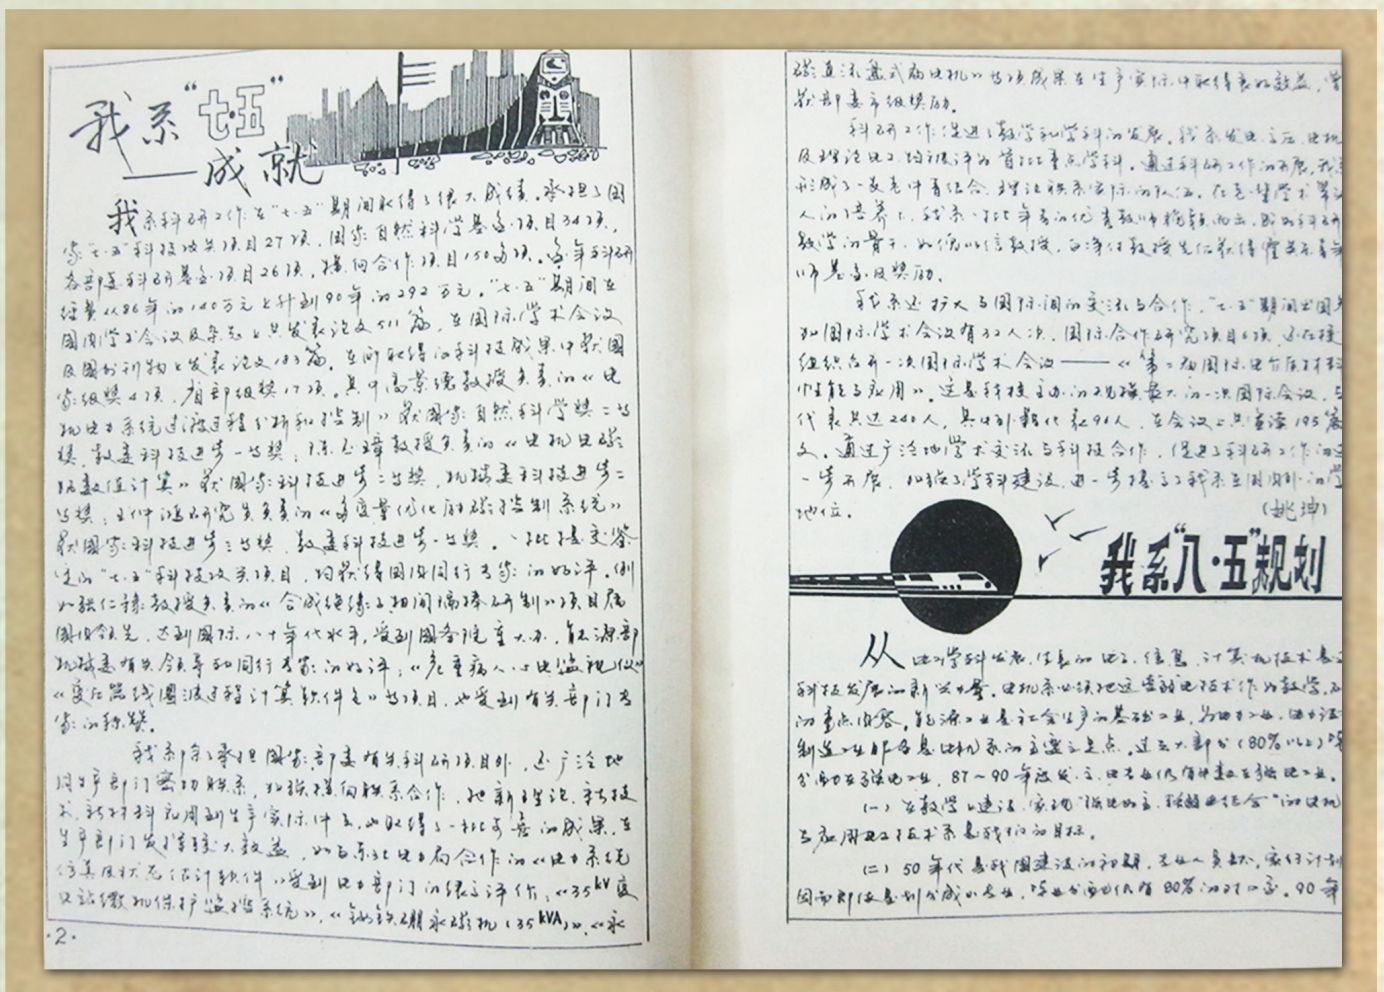 我系"七·五"
——成就
我系科研工作在"七·五"期间取得了很大成绩。承担了国
家"七·五"科技攻关项目27项，国家自然科学基金项目34项，
各部委科研基金项目26项，横向合作项目150多项。每年科研
经费从86年的140万元上升到90年的292万元。"七·五"期间在
国内学术会议及杂志上共发表论文511篇，在国际学术会议
及国外刊物上发表论文183篇。在所取得的科技成果中获国
家级奖4项，省部级奖17项。其中高景德教授负责的《电
机电力系统过渡过程分析和控制》获国家自然科学奖二等
奖，教委科技进步一等奖；陈丕璋教授负责的《电机电磁
场数值计算》获国家科技进步二等奖，机械委科技进步二
等奖；王仲鸿研究员负责的《多变量优化励磁控制系统》
获国家科技进步三等奖，教委科技进步一等奖。一批提交鉴
定的"七·五"科技攻关项目，均获得国内同行专家的好评。例
如张仁豫教授负责的《合成绝缘子相间隔棒研制》项目属
国内领先，达到国际八十年代水平，受到国务院重大办，能源部
机械委有关领导和同行专家的好评；《危重病人心电监视仪》
《变压器线圈波过程计算软件包》等项目，也受到有关部门专
家的称赞。
我系除了承担国家、部委有关科研项目外，还广泛地
同生产部门密切联系，加强横向联系合作，把新理论、新技
术、新材料应用到生产实际中去，也取得了一批可喜的成果，在
生产部门发挥较大效益，如与东北电力局合作的《电力系统
仿真及状态估计软件》受到电力部门的很高评价；《35kV变
电站微机保护监控系统》，《钕铁硼永磁机（35kVA）》，《永
·2·
磁直流盘式电机》等项成果在生产实际中取得良好效益，曾
获部委市级奖励。
科研工作促进了教学和学科的发展，我系发电、高压、电机
及理论电工均被评为首批重点学科。通过科研工作的开展，我系
形成了一支老中青结合、理论联系实际的队伍。在
人的培养上，我系一批年青的优秀教师
教学的骨干，如倪以信教授、
师基金及奖励。
我系还扩大与国际间的交流与合作，"七·五"期间出国参
加国际学术会议有32人次，国际合作研究项目6项，还在
组织召开一次国际学术会议——《第二届国际电介质材料
性能与应用》。这是我校主办的规模最大的一次国际会议，与
代表共达240人，其中外籍代表91人，在会议上共宣读195篇
文。通过广泛地学术交流与科技合作，促进了科研工作的进
一步开展，加强了学科建设，进一步提高了我系在国内外的学
地位。
（姚坤）
我系"八·五"规划
从电力学科发展，信息的电工、信息、计算机技术是
科技发展的新兴力量。电机系必须把这些弱电技术作为教学、
的重点内容。能源工业是社会生产的基础工业，为电力工业、电力设
制造工业服务是电机系的主要立足点。过去大部分（80%以上）毕
分配在强电工业，87～90年
（一）在教学上建设、实现"强电为主，强弱电结合"的电机
与应用电工技术系是我们的目标。
（二）50年代是我国建设的初期，
因而即使是划分成小专业，毕业分配仍有80%的对口率。90年